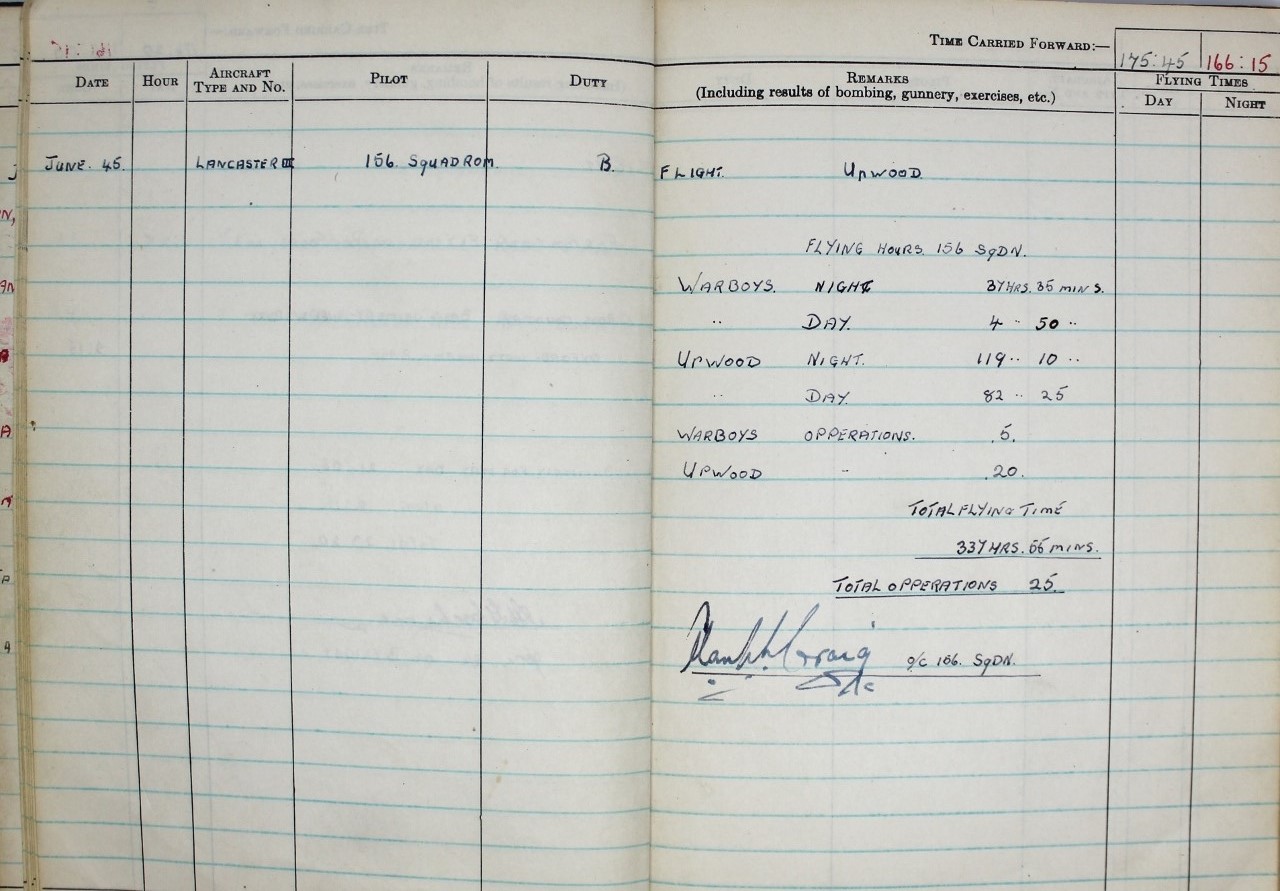 TIME CARRIED FORWARD:— 175:45 166:15
DATE HOUR AIRCRAFT TYPE AND NO. PILOT DUTY REMARKS (Including results of bombing, gunnery, exercises, etc.) FLYING TIMES DAY NIGHT
JUNE. 45. LANCASTER III 156. SQUADRON. B. FLIGHT. UPWOOD
FLYING HOURS. 156 SQDN.
WARBOYS. NIGHT 37 HRS. 35 MINS.
" DAY. 4 " 50 "
UPWOOD NIGHT. 119 " 10 "
" DAY. 82 " 25
WARBOYS OPPERATIONS. 5.
UPWOOD " 20.
TOTAL FLYING TIME
337 HRS. 55 MINS.
TOTAL OPPERATIONS 25.
O/C 156. SQDN.